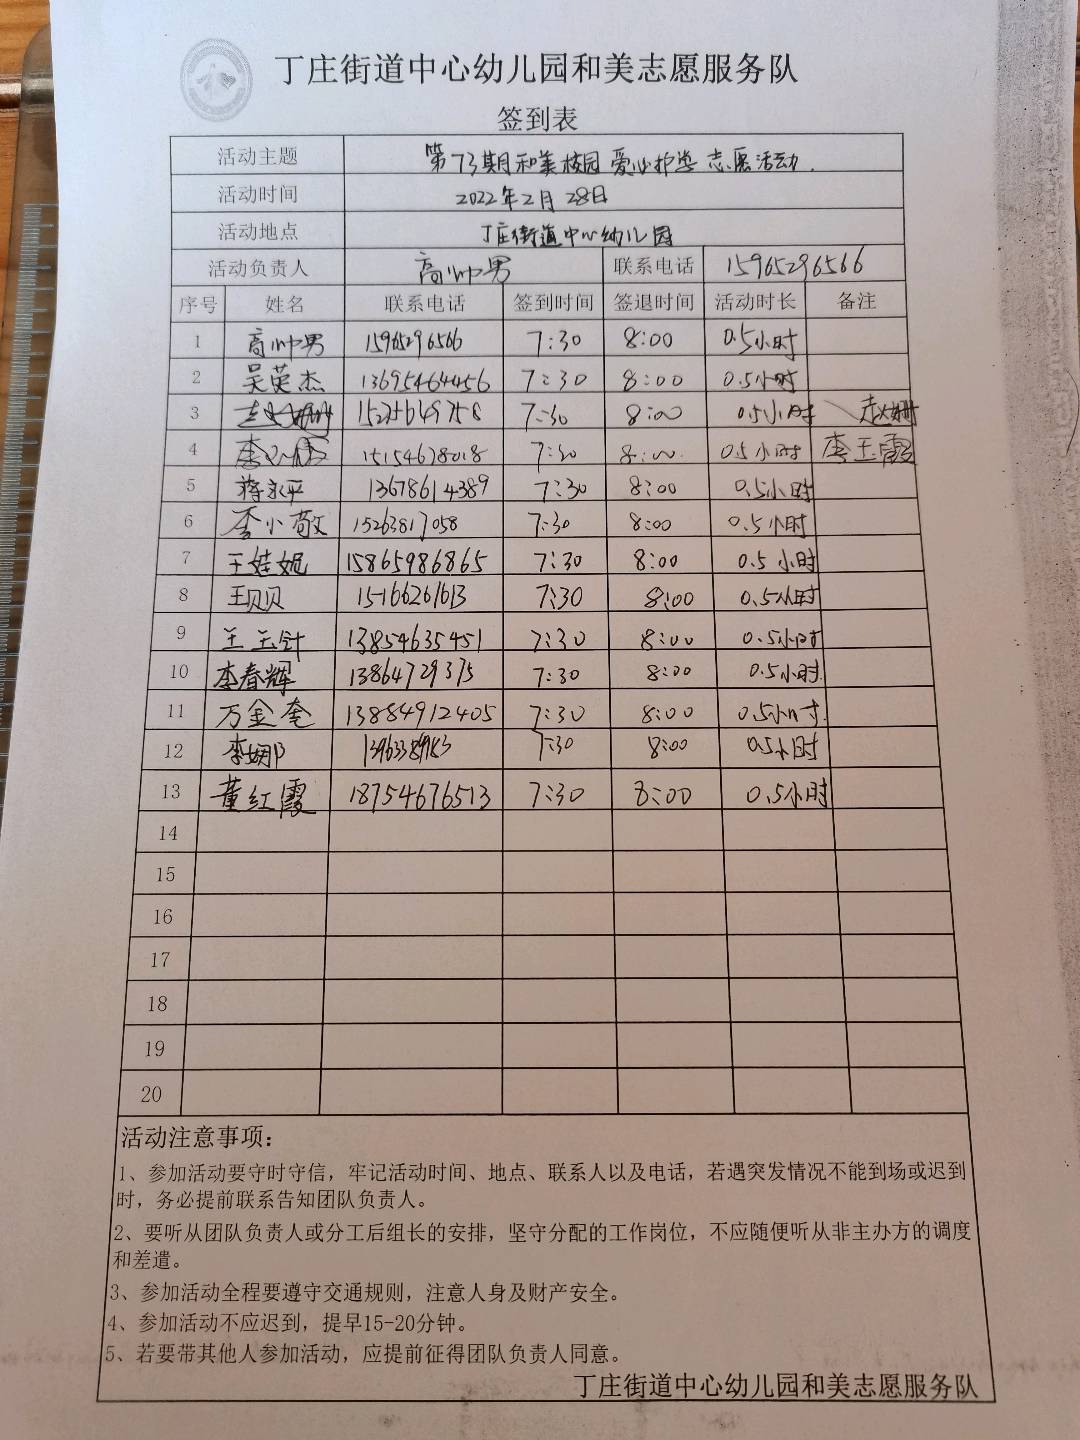 丁庄街道中心幼儿园和美志愿服务队
签到表
活动主题 第73期和美校园 爱心护学 志愿活动.
活动时间 2022年2月28日
活动地点 丁庄街道中心幼儿园
活动负责人 高帅男 联系电话 15965296566
序号 姓名 联系电话 签到时间 签退时间 活动时长 备注
1 高帅男 15965296566 7:30 8:00 0.5小时
2 吴英杰 13695464456 7:30 8:00 0.5小时
3 7:30 8:00 0.5小时 赵姗
4 15154678018 7:30 8:00 0.5小时 李玉霞
5 蒋永平 13678614389 7:30 8:00 0.5小时
6 李小敬 15263817058 7:30 8:00 0.5小时
7 王娃妮 15865986865 7:30 8:00 0.5小时
8 王贝贝 15166261613 7:30 8:00 0.5小时
9 王玉针 13854635451 7:30 8:00 0.5小时
10 李春辉 13864729375 7:30 8:00 0.5小时.
11 万金奎 13884912405 7:30 8:00 0.5小时.
12 李娜 7:30 8:00 0.5小时
13 董红霞 18754676513 7:30 8:00 0.5小时
14
15
16
17
18
19
20
活动注意事项：
1、参加活动要守时守信，牢记活动时间、地点、联系人以及电话，若遇突发情况不能到场或迟到
时，务必提前联系告知团队负责人。
2、要听从团队负责人或分工后组长的安排，坚守分配的工作岗位，不应随便听从非主办方的调度
和差遣。
3、参加活动全程要遵守交通规则，注意人身及财产安全。
4、参加活动不应迟到，提早15-20分钟。
5、若要带其他人参加活动，应提前征得团队负责人同意。
丁庄街道中心幼儿园和美志愿服务队